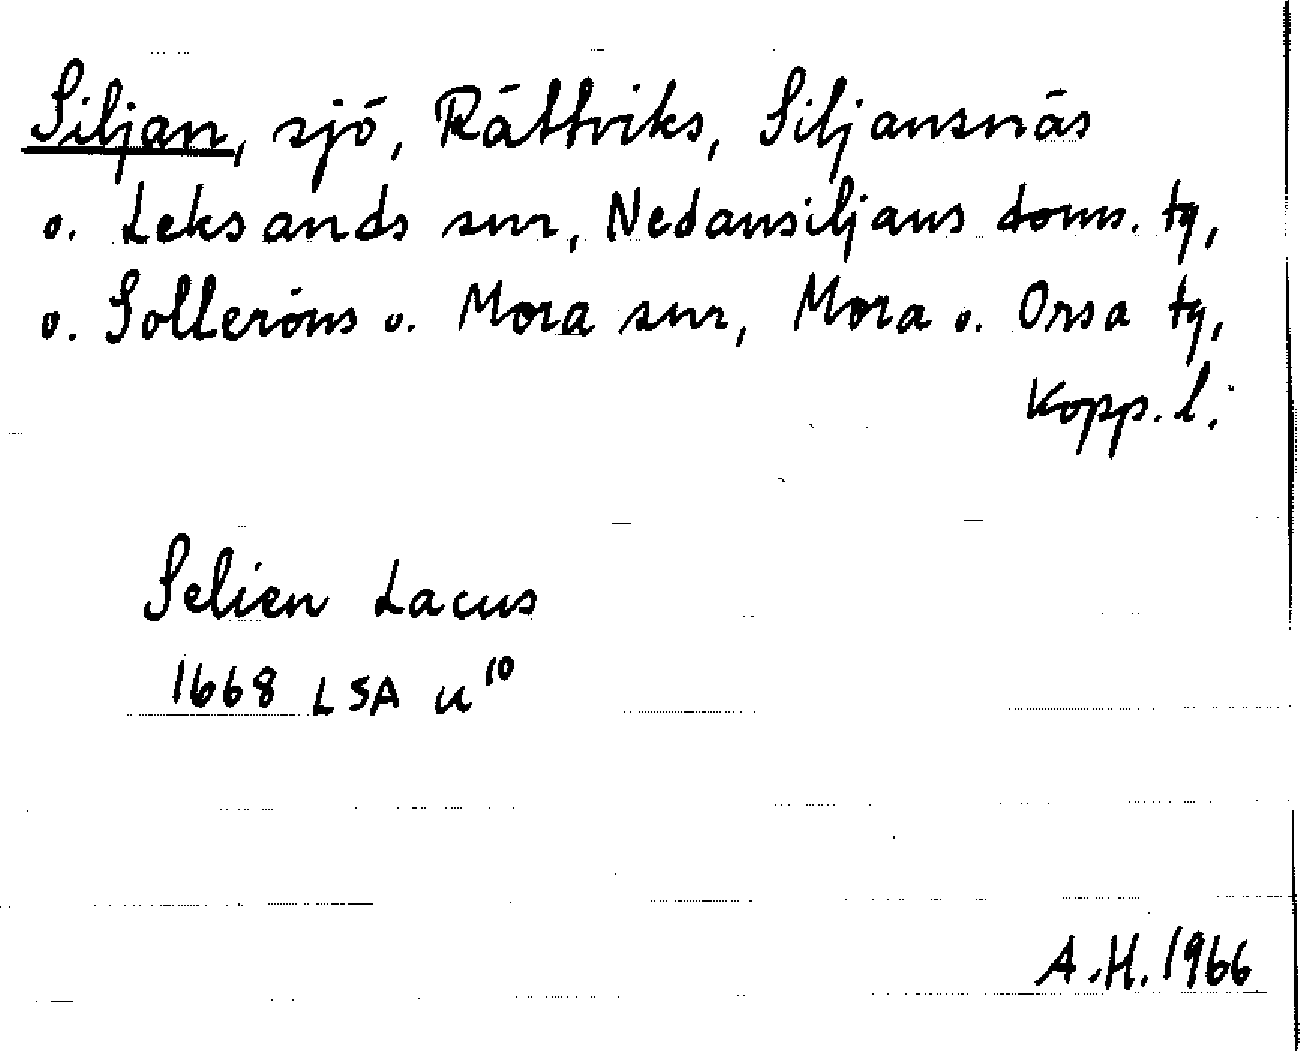 Siljan, sjö, Rättviks, Siljansnäs
o. Leksands snr, Nedansiljans doms. tg,
o. Solleröns o. Mora snr, Mora o. Orsa tg,
Kopp. l.
Selien Lacus
1668 LSA u 10
A.H. 1966